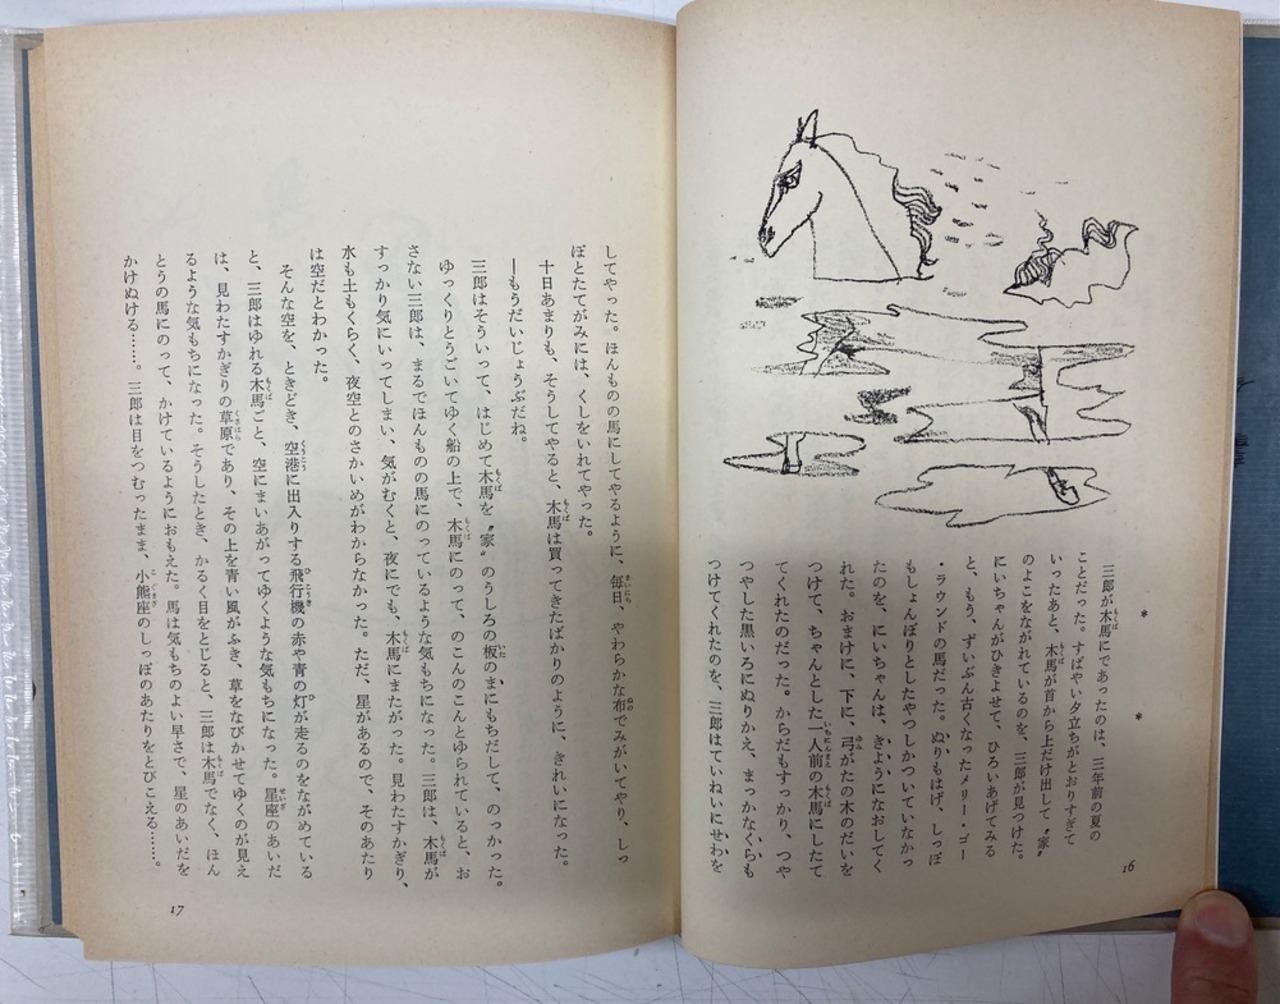 ＊
＊
三郎が木馬にであったのは、三年前の夏の
ことだった。すばやい夕立ちがとおりすぎて
いったあと、木馬が首から上だけ出して〝家〟
のよこをながれているのを、三郎が見つけた。
にいちゃんがひきよせて、ひろいあげてみる
と、もう、ずいぶん古くなったメリー・ゴー
・ラウンドの馬だった。ぬりもはげ、しっぽ
もしょんぼりとしたやつしかついていなかっ
たのを、にいちゃんは、きようになおしてく
れた。おまけに、下に、弓がたの木のだいを
つけて、ちゃんとした一人前の木馬にしたて
てくれたのだった。からだもすっかり、つや
つやした黒いろにぬりかえ、まっかなくらも
つけてくれたのを、三郎はていねいにせわを
16
してやった。ほんものの馬にしてやるように、毎日、やわらかな布でみがいてやり、しっ
ぽとたてがみには、くしをいれてやった。
十日あまりも、そうしてやると、木馬は買ってきたばかりのように、きれいになった。
―もうだいじょうぶだね。
三郎はそういって、はじめて木馬を〝家〟のうしろの板のまにもちだして、のっかった。
ゆっくりとうごいてゆく船の上で、木馬にのって、のこんのこんとゆられていると、お
さない三郎は、まるでほんものの馬にのっているような気もちになった。三郎は、木馬が
すっかり気にいってしまい、気がむくと、夜にでも、木馬にまたがった。見わたすかぎり、
水も土もくらく、夜空とのさかいめがわからなかった。ただ、星があるので、そのあたり
は空だとわかった。
そんな空を、ときどき、空港に出入りする飛行機の赤や青の灯が走るのをながめている
と、三郎はゆれる木馬ごと、空にまいあがってゆくような気もちになった。星座のあいだ
は、見わたすかぎりの草原であり、その上を青い風がふき、草をなびかせてゆくのが見え
るような気もちになった。そうしたとき、かるく目をとじると、三郎は木馬でなく、ほん
とうの馬にのって、かけているようにおもえた。馬は気もちのよい早さで、星のあいだを
かけぬける……。三郎は目をつむったまま、小熊座のしっぽのあたりをとびこえる……。
17